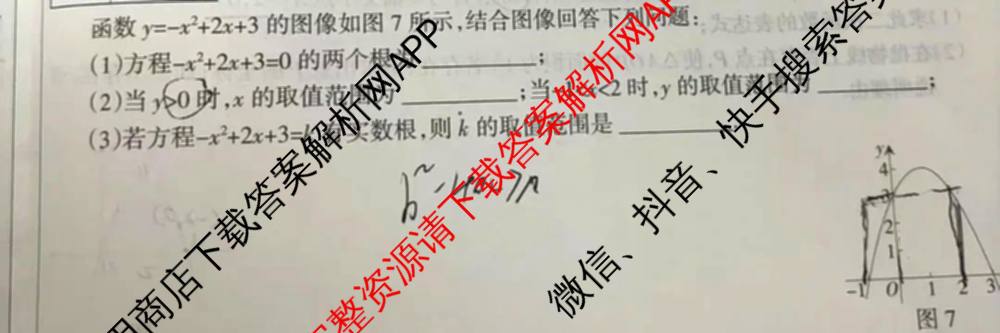 函数 y=-x²+2x+3 的图像如图 7 所示,结合图像回答下列问题:
(1)方程-x²+2x+3=0 的两个根
;
(2)当 y>0 时,x 的取值范围为 ;当 <2 时,y 的取值范围为 ;
(3)若方程-x²+2x+3= 实数根,则 k 的取值范围是
b²-4
y
4
3
2
1
-1 O 1 2 3
图 7
商店下载答案解析网APP
整资源请下载答案解析网APP
微信、抖音、快手搜索答案